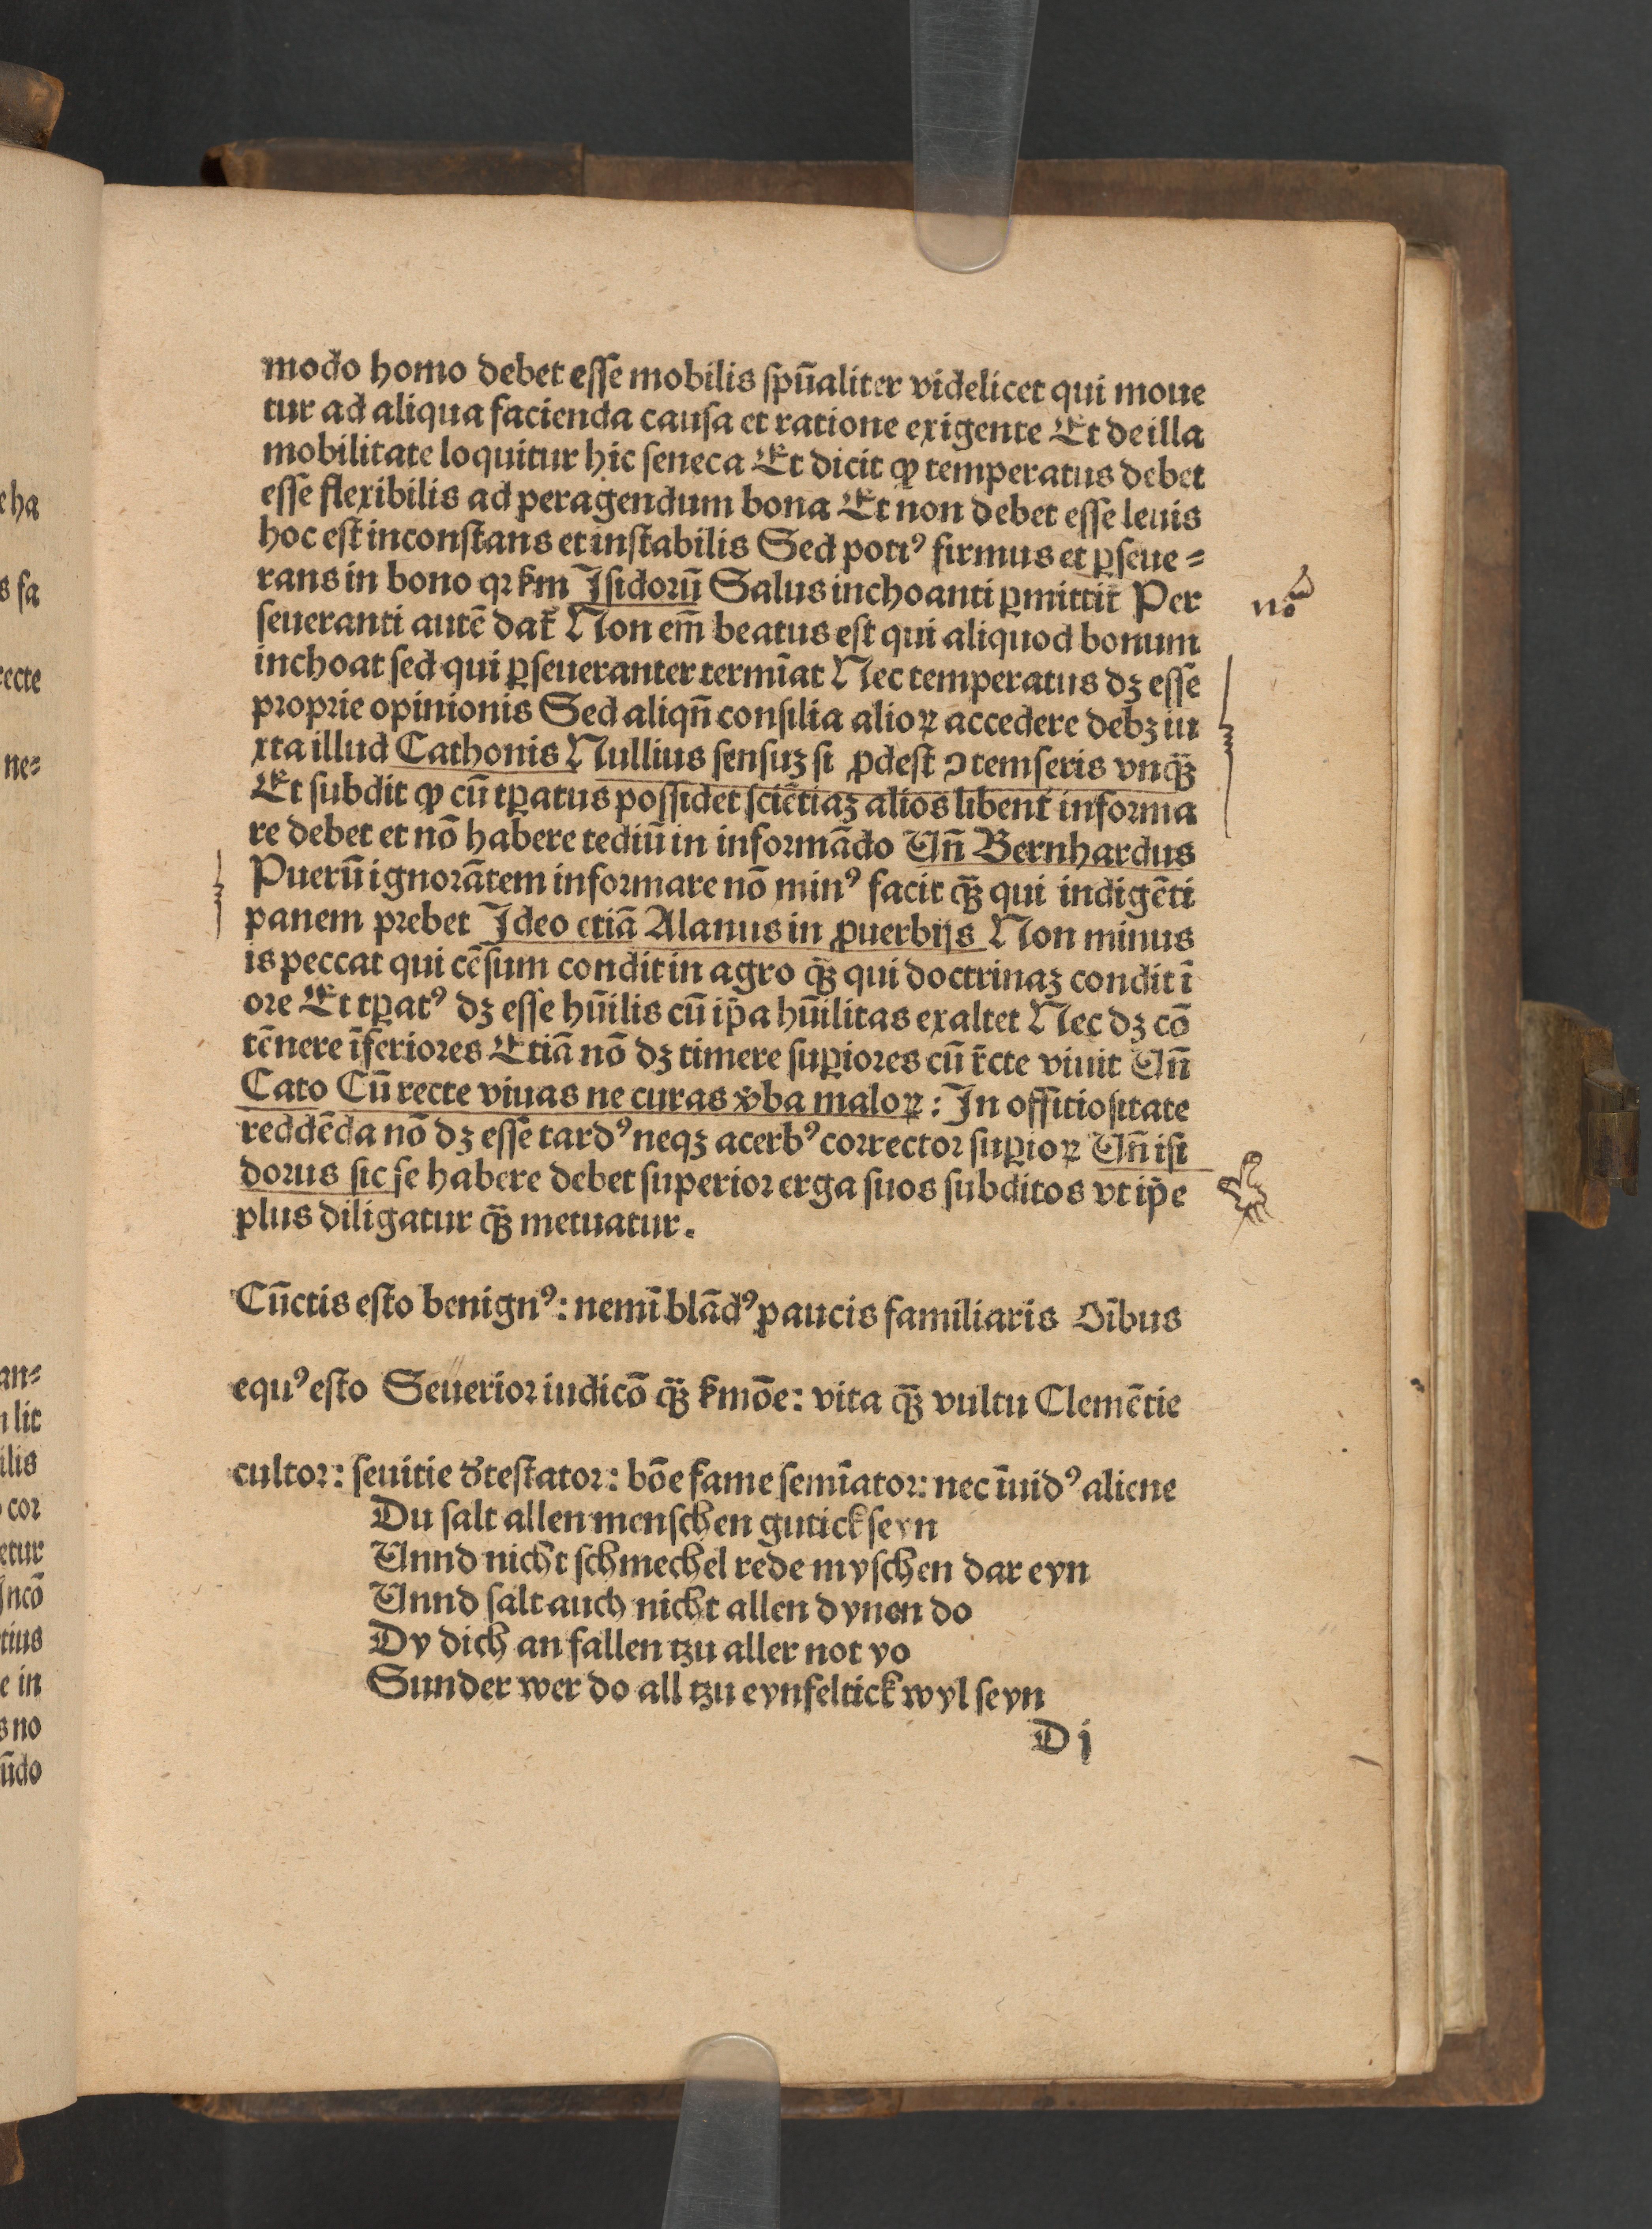 modo homo debet esse mobilis spūaliter videlicet qui moue
tur ad aliqua facienda causa et ratione exigente Et de illa
mobilitate loquitur hic seneca Et dicit ꝙ temperatus debet
esse flexibilis ad peragendum bona Et non debet esse leuis
hoc est inconstans et instabilis Sed potiꝰ firmus et ꝑseue⸗
rans in bono qꝛ km̄ Isidorū Salus inchoanti ꝑmittit̄ Per
seueranti autē dat̄ Non em̄ beatus est qui aliquod bonum
inchoat sed qui ꝑseueranter termīat Nec temperatus dꝫ esse
proprie opinionis Sed aliqñ consilia alioꝝ accedere debꝫ iu
xta illud Cathonis Nullius sensuꝫ si ꝓdest ꝯtemseris vnqꝫ̄
Et subdit ꝙ cū tꝑatus possidet sciētiaꝫ alios libent̄ informa
re debet et nō habere tediū in informādo Vñ Bernhardus
Puerū ignorātem informare nō minꝰ facit qꝫ̄ qui indigēti
panem prebet Ideo etiā Alanus in ꝓuerbijs Non minus
is peccat qui cēsum condit in agro qꝫ̄ qui doctrinaꝫ condit ī
ore Et tꝑatꝰ dꝫ esse hūilis cū ip̄a hūilitas exaltet Nec dꝫ cō
tēnere īferiores Etiā nō dꝫ timere suꝑiores cū r̄cte viuit Vñ
Cato Cū recte viuas ne curas v̾ba maloꝝ: In offitiositate
reddēda nō dꝫ esse tardꝰ neqꝫ acerbꝰ corrector suꝑioꝝ Vñ isi
dorus sic se habere debet superior erga suos subditos vt ip̄e
plus diligatur qꝫ̄ metuatur.
Cūctis esto benignꝰ: nemī blādꝰ paucis familiaris Oībus
equꝰ esto Seuerior iudicō qꝫ̄ kmōe: vita qꝫ̄ vultu Clemētie
cultor: seuitie d̾testator: bōe fame semīator: nec īuidꝰ aliene
Du salt allen menschen gutick seyn
Vnnd nicht schmechel rede myschen dar eyn
Vnnd salt auch nicht allen dynen do
Dy dich an fallen tzu aller not yo
Sunder wer do all tzu eynfeltick wyl seyn
D j